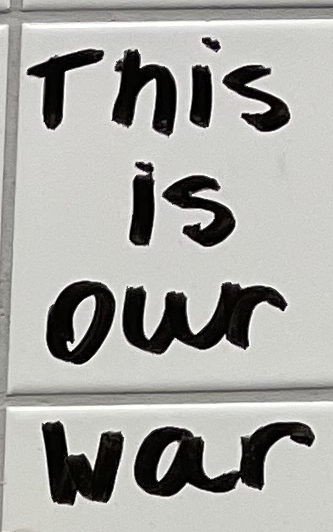 This
is
our
war